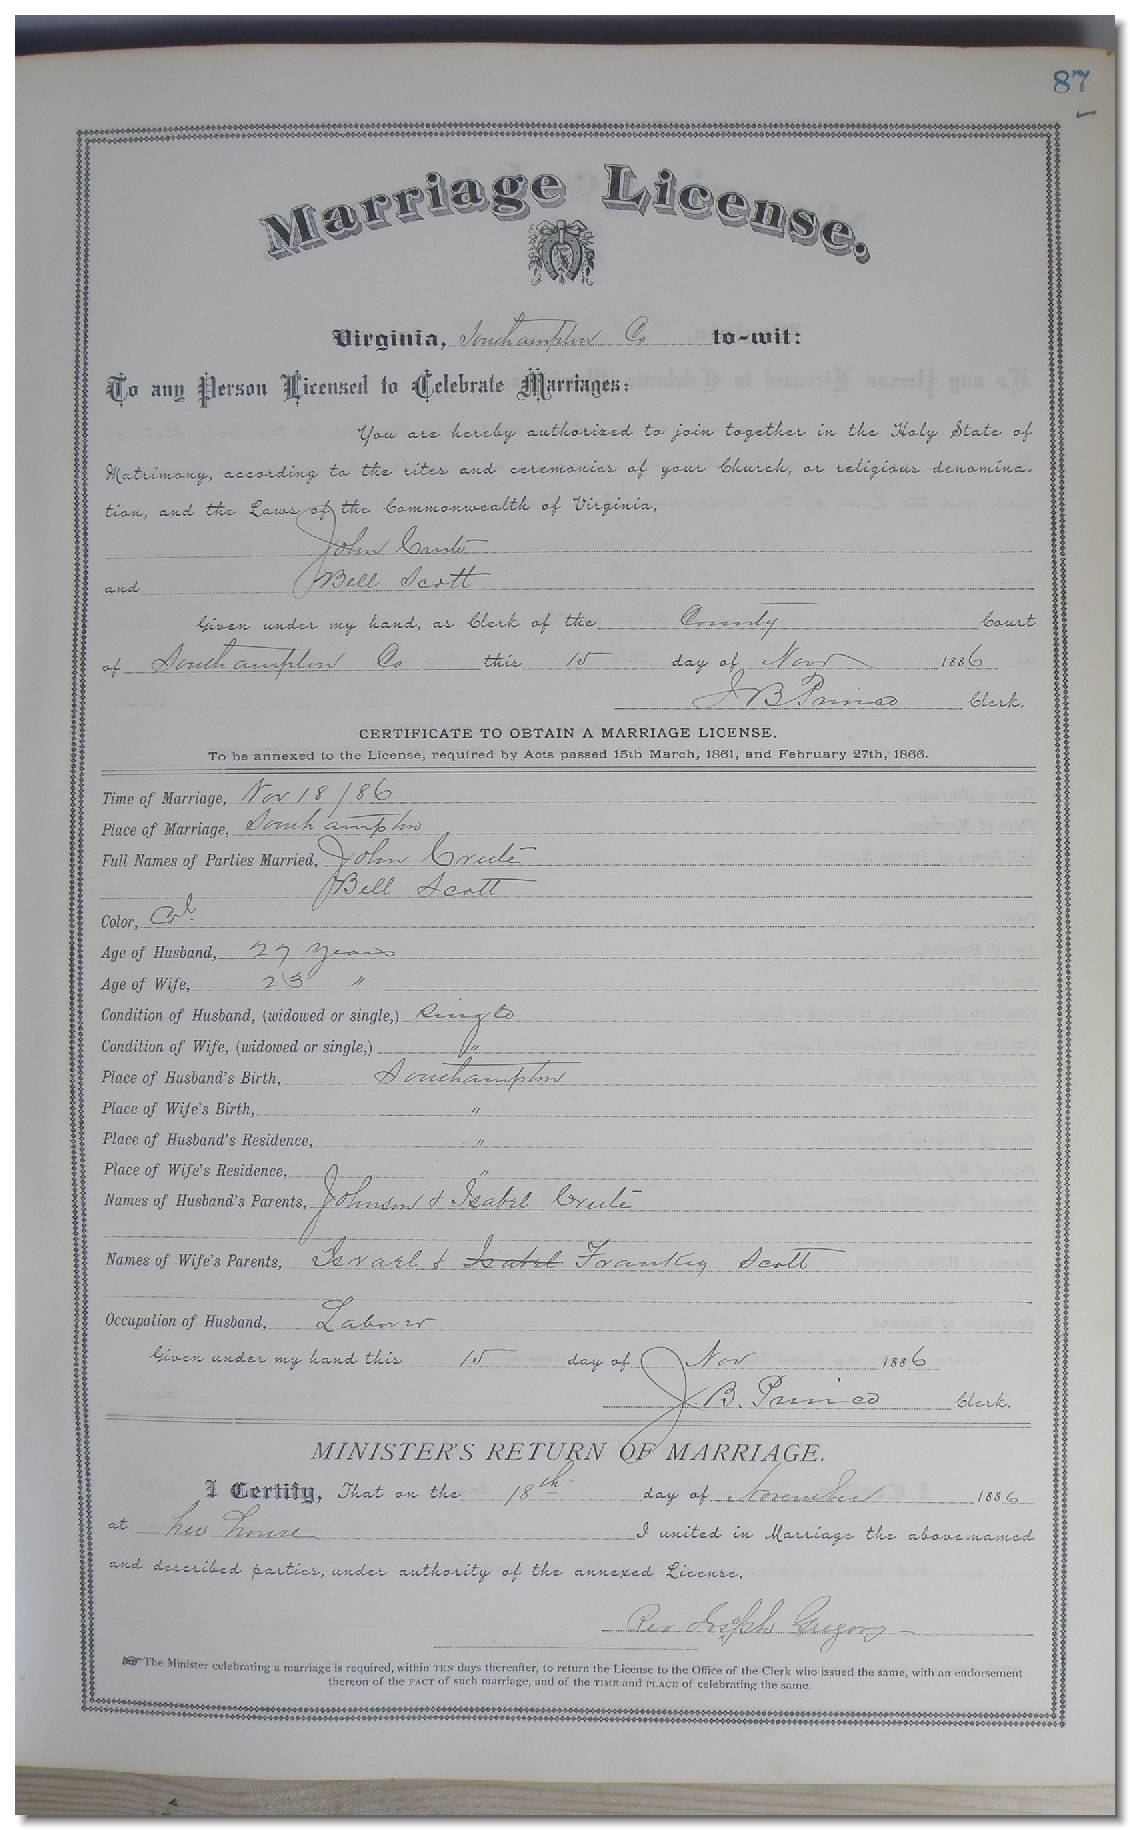 87
Marriage License.
Virginia, Southampton Co to-wit:
To any Person Licensed to Celebrate Marriages:
You are hereby authorized to join together in the Holy State of
Matrimony, according to the rites and ceremonies of your Church, or religious denomina-
tion, and the Laws of the Commonwealth of Virginia,
John Crute
and Bell Scott
Given under my hand, as Clerk of the County Court
of Southampton Co this 15 day of Novr 1886
J B Prince Clerk.
CERTIFICATE TO OBTAIN A MARRIAGE LICENSE.
To be annexed to the License, required by Acts passed 15th March, 1861, and February 27th, 1866.
Time of Marriage, Nov 18/86
Place of Marriage, Southampton
Full Names of Parties Married, John Crute
Bell Scott
Color, Cold
Age of Husband, 27 years
Age of Wife, 23 "
Condition of Husband, (widowed or single,) Single
Condition of Wife, (widowed or single,) "
Place of Husband's Birth, Southampton
Place of Wife's Birth, "
Place of Husband's Residence, "
Place of Wife's Residence, "
Names of Husband's Parents, Johnson & Isabel Crute
Names of Wife's Parents, Israel & Isabel Frankey Scott
Occupation of Husband, Laborer
Given under my hand this 15 day of Nov 1886
J. B. Prince Clerk.
MINISTER'S RETURN OF MARRIAGE.
I Certify, That on the 18th day of November 1886
at her house I united in Marriage the above-named
and described parties, under authority of the annexed License.
Rev Joseph Gregory
The Minister celebrating a marriage is required, within TEN days thereafter, to return the License to the Office of the Clerk who issued the same, with an endorsement
thereon of the FACT of such marriage, and of the TIME and PLACE of celebrating the same.